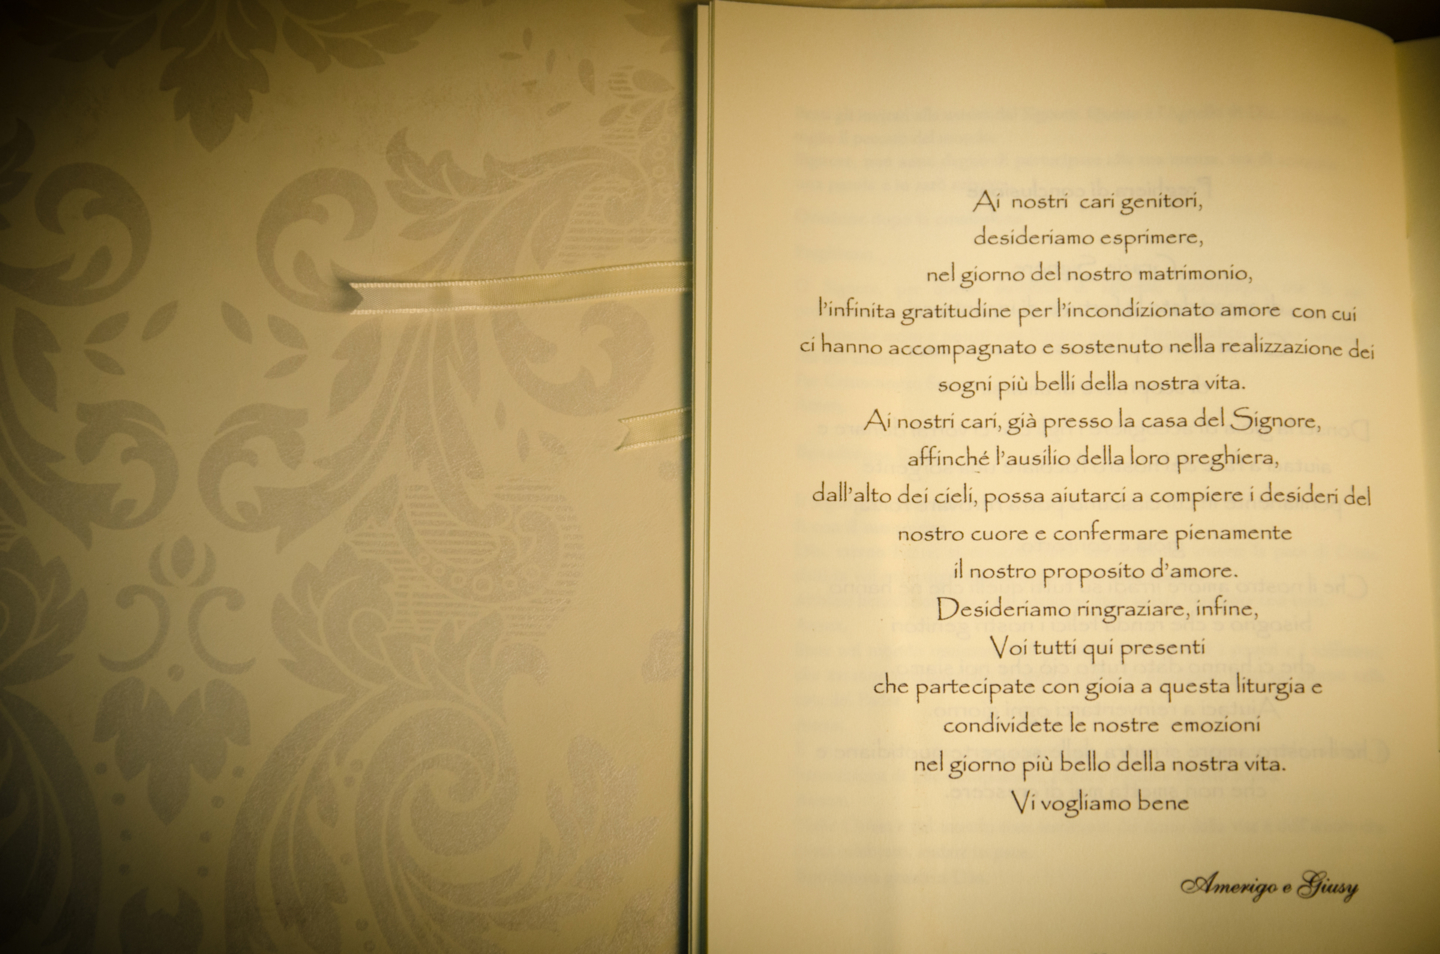 Ai nostri cari genitori,
desideriamo esprimere,
nel giorno del nostro matrimonio,
l'infinita gratitudine per l'incondizionato amore con cui
ci hanno accompagnato e sostenuto nella realizzazione dei
sogni più belli della nostra vita.
Ai nostri cari, già presso la casa del Signore,
affinché l'ausilio della loro preghiera,
dall'alto dei cieli, possa aiutarci a compiere i desideri del
nostro cuore e confermare pienamente
il nostro proposito d'amore.
Desideriamo ringraziare, infine,
Voi tutti qui presenti
che partecipate con gioia a questa liturgia e
condividete le nostre emozioni
nel giorno più bello della nostra vita.
Vi vogliamo bene
Amerigo e Giusy